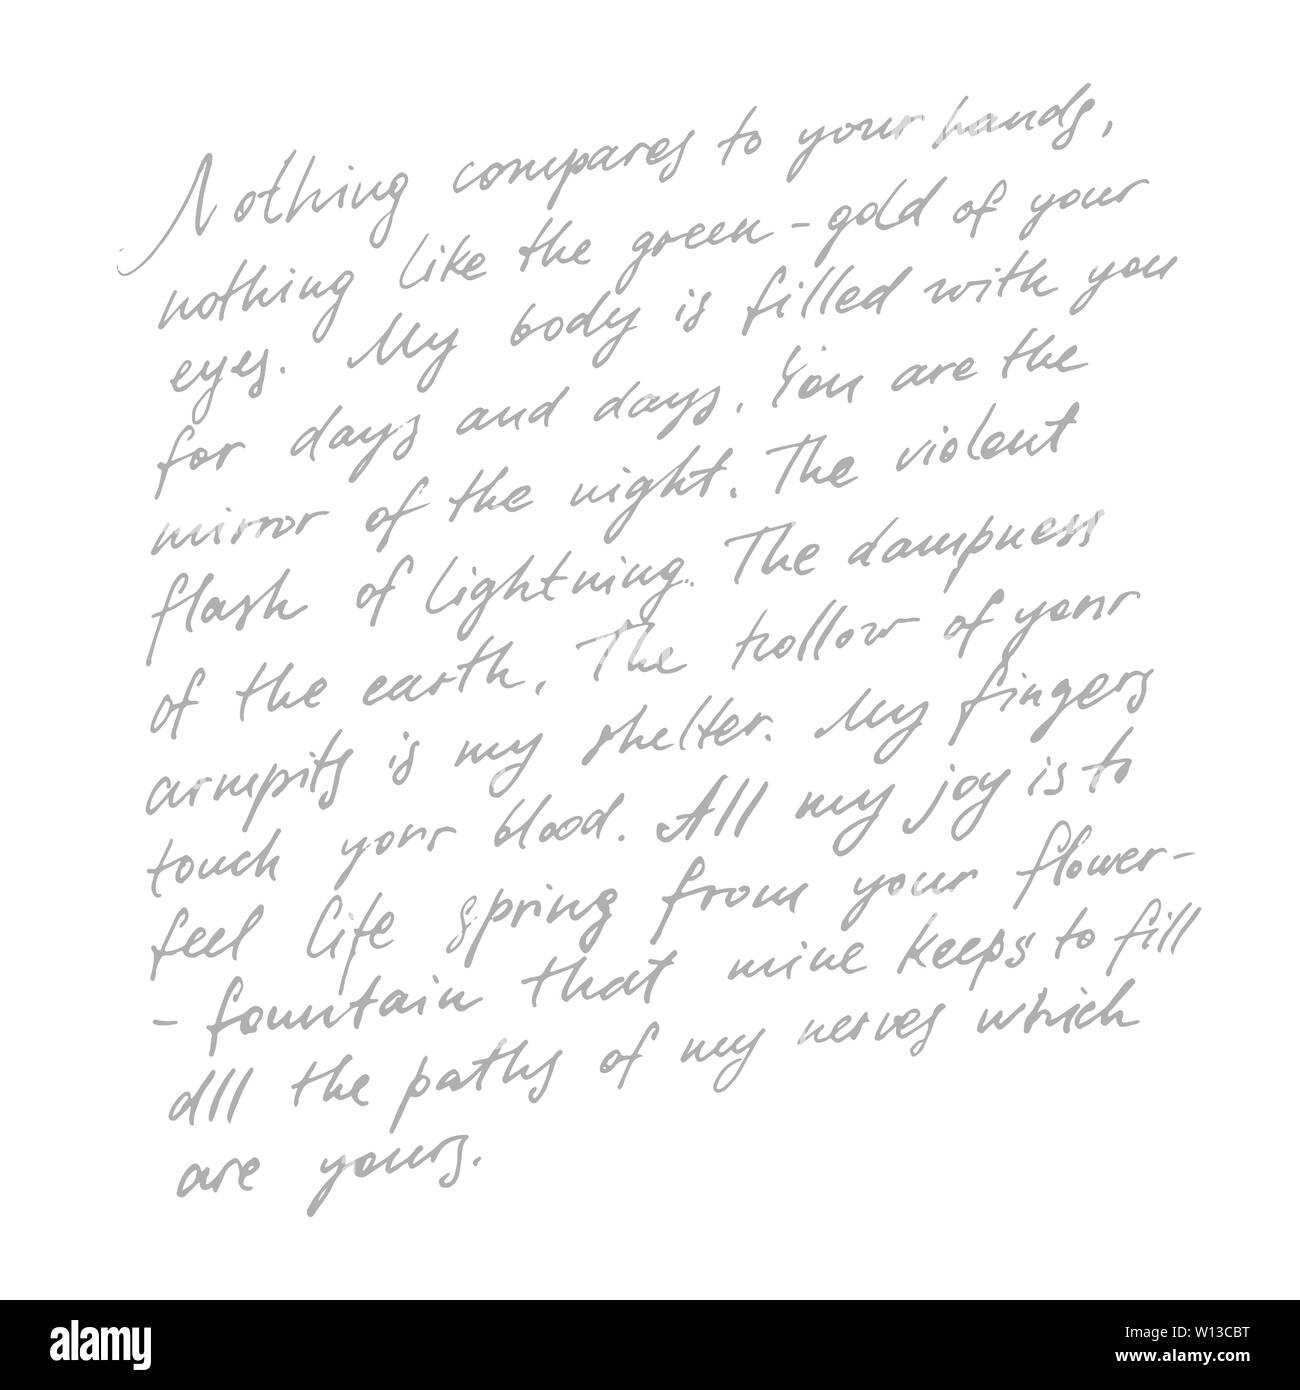 Nothing compares to your hands,
nothing like the green-gold of your
eyes. My body is filled with you
for days and days. You are the
mirror of the night. The violent
flash of lightning. The dampness
of the earth. The hollow of your
armpits is my shelter. My fingers
touch your blood. All my joy is to
feel life spring from your flower-
- fountain that mine keeps to fill
all the paths of my nerves which
are yours.
alamy
Image ID: W13CBT
www.alamy.com